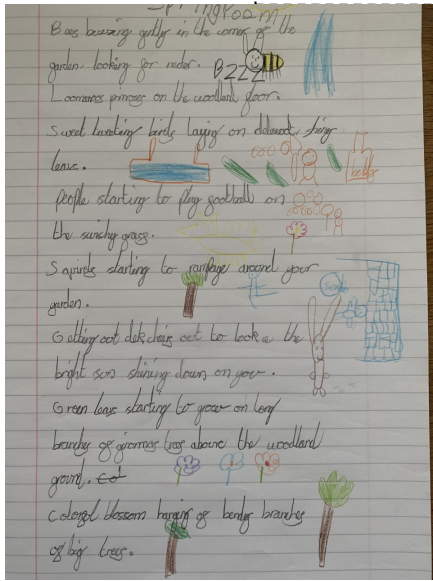 Spring Poem
Bees buzzing gently in the corner of the
garden, looking for nectar. BZZZ
princess on the woodland floor.
Sweet tweeting birds laying on shiny
leave.
people starting to play football on
the sunshiny grass.
Squirrels starting to rampage around your
garden.
Getting out dekchairs out to look a the
bright sun shining down on you.
Green leavs starting to grow on long
branches of ginormous trees above the woodland
ground.
colorful blossom hanging of bendy branches
of big trees.